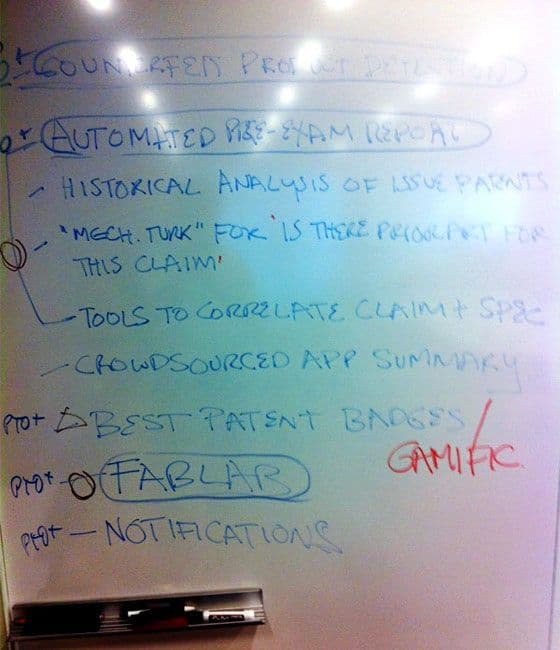 COUNTERFEIT PRODUCT DETECTION
AUTOMATED PRE-EXAM REPORT
- HISTORICAL ANALYSIS OF ISSUE PATENTS
- "MECH. TURK" FOR 'IS THERE PRIOR ART FOR
THIS CLAIM'
- TOOLS TO CORRELATE CLAIM + SPEC
- CROWDSOURCED APP SUMMARY
PTO+ BEST PATENT BADGES /
GAMIFIC.
PTO+ FABLAB
PTO+ - NOTIFICATIONS